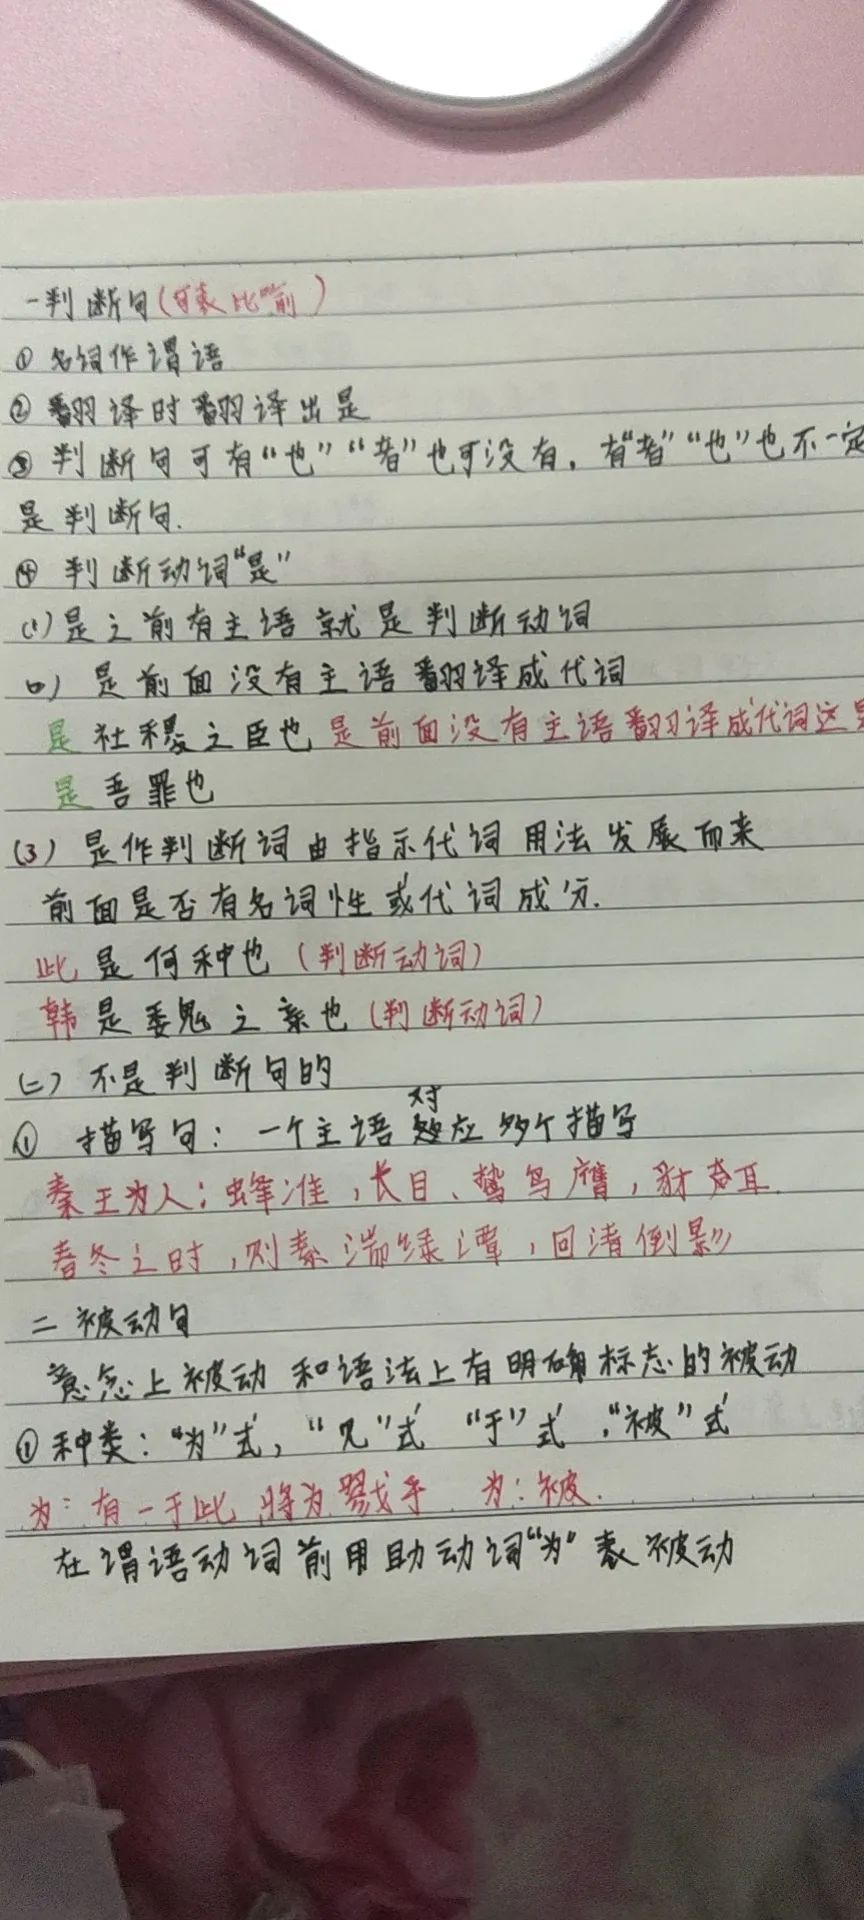 一判断句(可表比喻)
① 名词作谓语
② 翻译时翻译出是
③ 判断句可有“也”“者”也可没有,有“者”“也”也不一定
是判断句.
④ 判断动词“是”
(1)是之前有主语就是判断动词
是前面没有主语翻译成代词
是社稷之臣也 是前面没有主语翻译成代词这是
是吾罪也
(3)是作判断词由指示代词用法发展而来
前面是否有名词性或代词成分.
此是何种也(判断动词)
韩是魏之亲也(判断动词)
(二)不是判断句的
① 描写句:一个主语对应多个描写
秦王为人:蜂准,长目、鸷鸟膺,豺声耳.
春冬之时,则素湍绿潭,回清倒影
二 被动句
意念上被动 和语法上有明确标志的被动
① 种类:“为”式,“见”式 “于”式,“被”式
为:有一于此 将为戮乎 为:被.
在谓语动词前用助动词“为”表被动